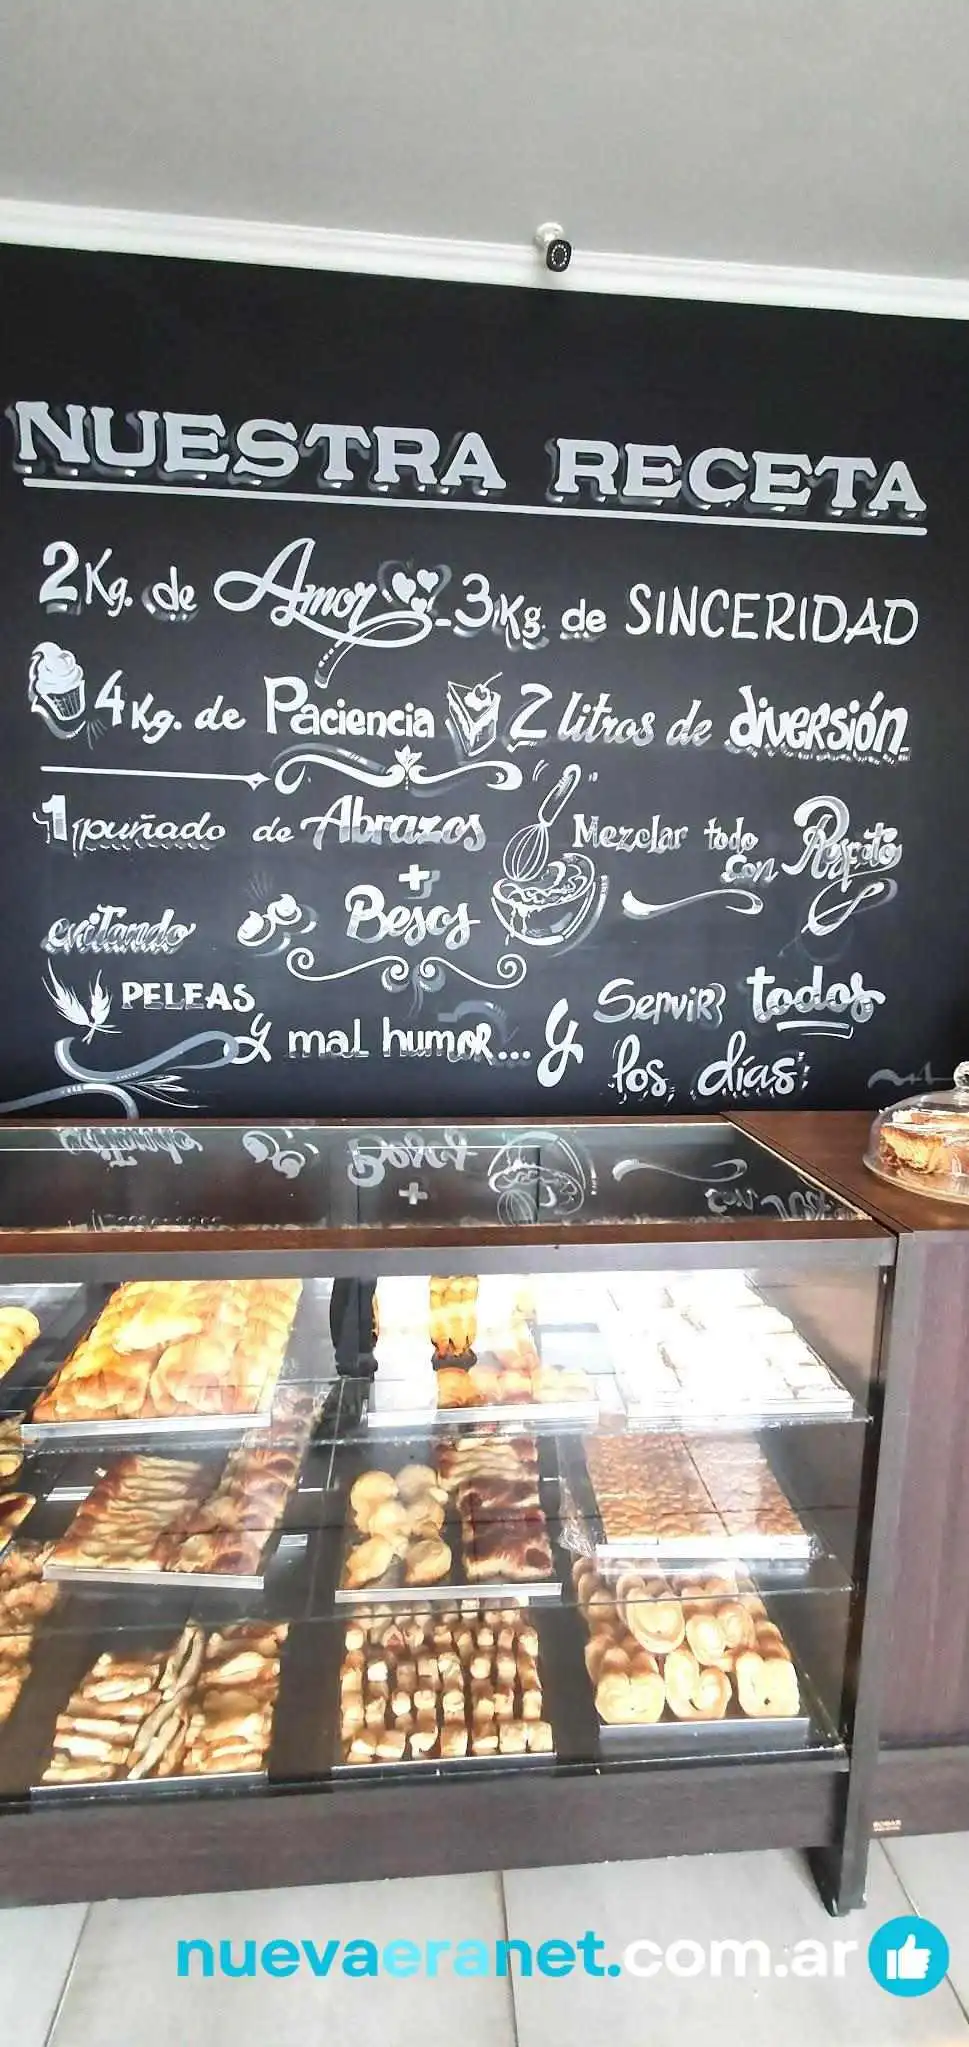 NUESTRA RECETA
2Kg. de Amor - 3Kg. de SINCERIDAD
4Kg. de Paciencia 2 litros de diversión
1 puñado de Abrazos
+
Besos
Mezclar todo
con Respeto
evitando
PELEAS
y mal humor... y
Servir todos
los días
nuevaeranet.com.ar